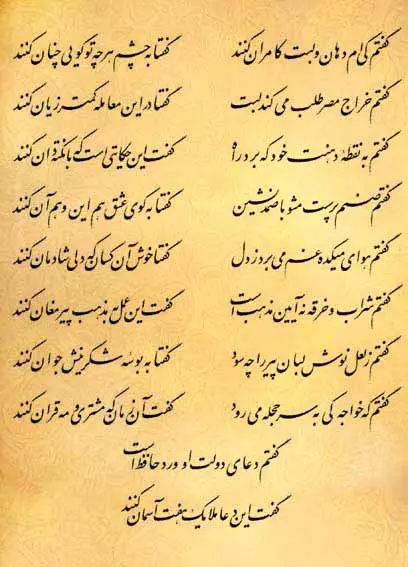 گفتم کی ام دهان و لبت کامران کنند گفتا به چشم هر چه تو گویی چنان کنند
گفتم خراج مصر طلب می کند لبت گفتا در این معامله کمتر زیان کنند
گفتم به نقطهٔ دهنت خود که برد راه گفت این حکایتی است که با نکته دان کنند
گفتم صنم پرست مشو با صمد نشین گفتا به کوی عشق هم این و هم آن کنند
گفتم هوای میکده غم می برد ز دل گفتا خوش آن کسان که دلی شادمان کنند
گفتم شراب و خرقه نه آیین مذهب است گفت این عمل به مذهب پیر مغان کنند
گفتم ز لعل نوش لبان پیر را چه سود گفتا به بوسه شکرینش جوان کنند
گفتم که خواجه کی به سر حجله می رود گفت آن زمان که مشتری و مه قران کنند
گفتم دعای دولت او ورد حافظ است
گفت این دعا ملایک هفت آسمان کنند